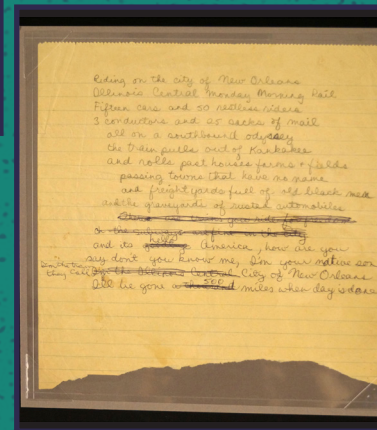 Riding on the city of New Orleans
Illinois Central Monday Morning Rail
Fifteen cars and 50 restless riders
3 conductors and 25 sacks of mail
all on a southbound odyssey
the train pulls out of Kankakee
and rolls past houses farms + fields
passing towns that have no name
and freight yards full of old black men
and the graveyards of rusted automobiles
and its hello America, how are you
say dont you know me, I'm your native son
I'm the train they call
the Illinois Central City of New Orleans
I'll be gone 500 miles when day is done